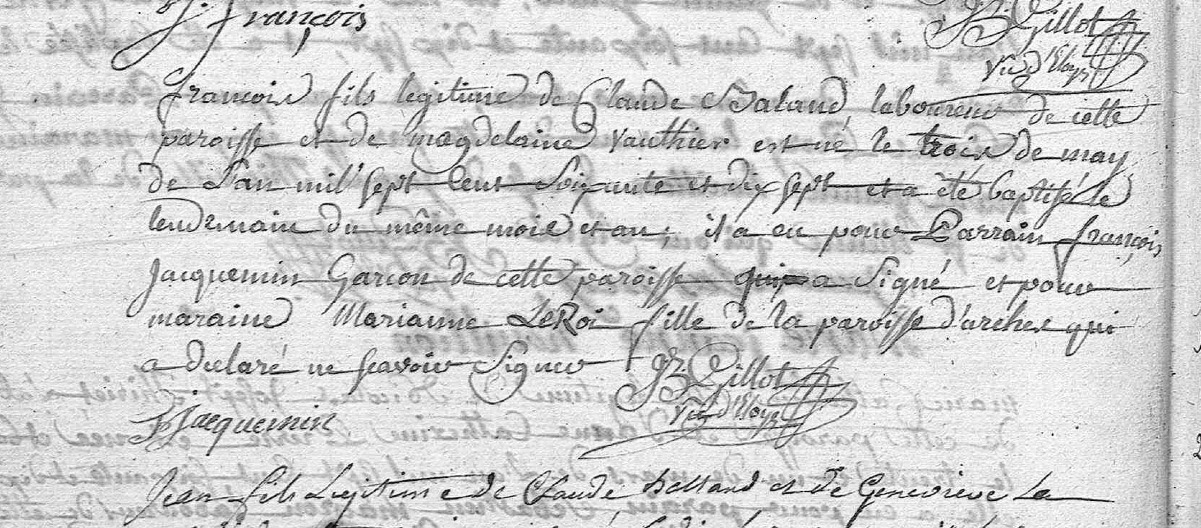 françois
JB Gillot
Vic d'Eloyes
françois fils légitime de Claude Balaud, laboureur de cette
paroisse et de magdelaine Vauthier est né le trois de may
de L'an mil sept Cent Soixante et dix sept et a été baptisé le
lendemain du même mois et an, il a eu pour Parrain françois
Jacquemin Garcon de cette paroisse qui a Signé et pour
maraine Marianne LeRoi fille de la paroisse d'arches qui
a declaré ne scavoir Signer JB Gillot
Vic d'Eloyes
Jacquemin
Jean fils Legitime de Claude et de Genevieve La